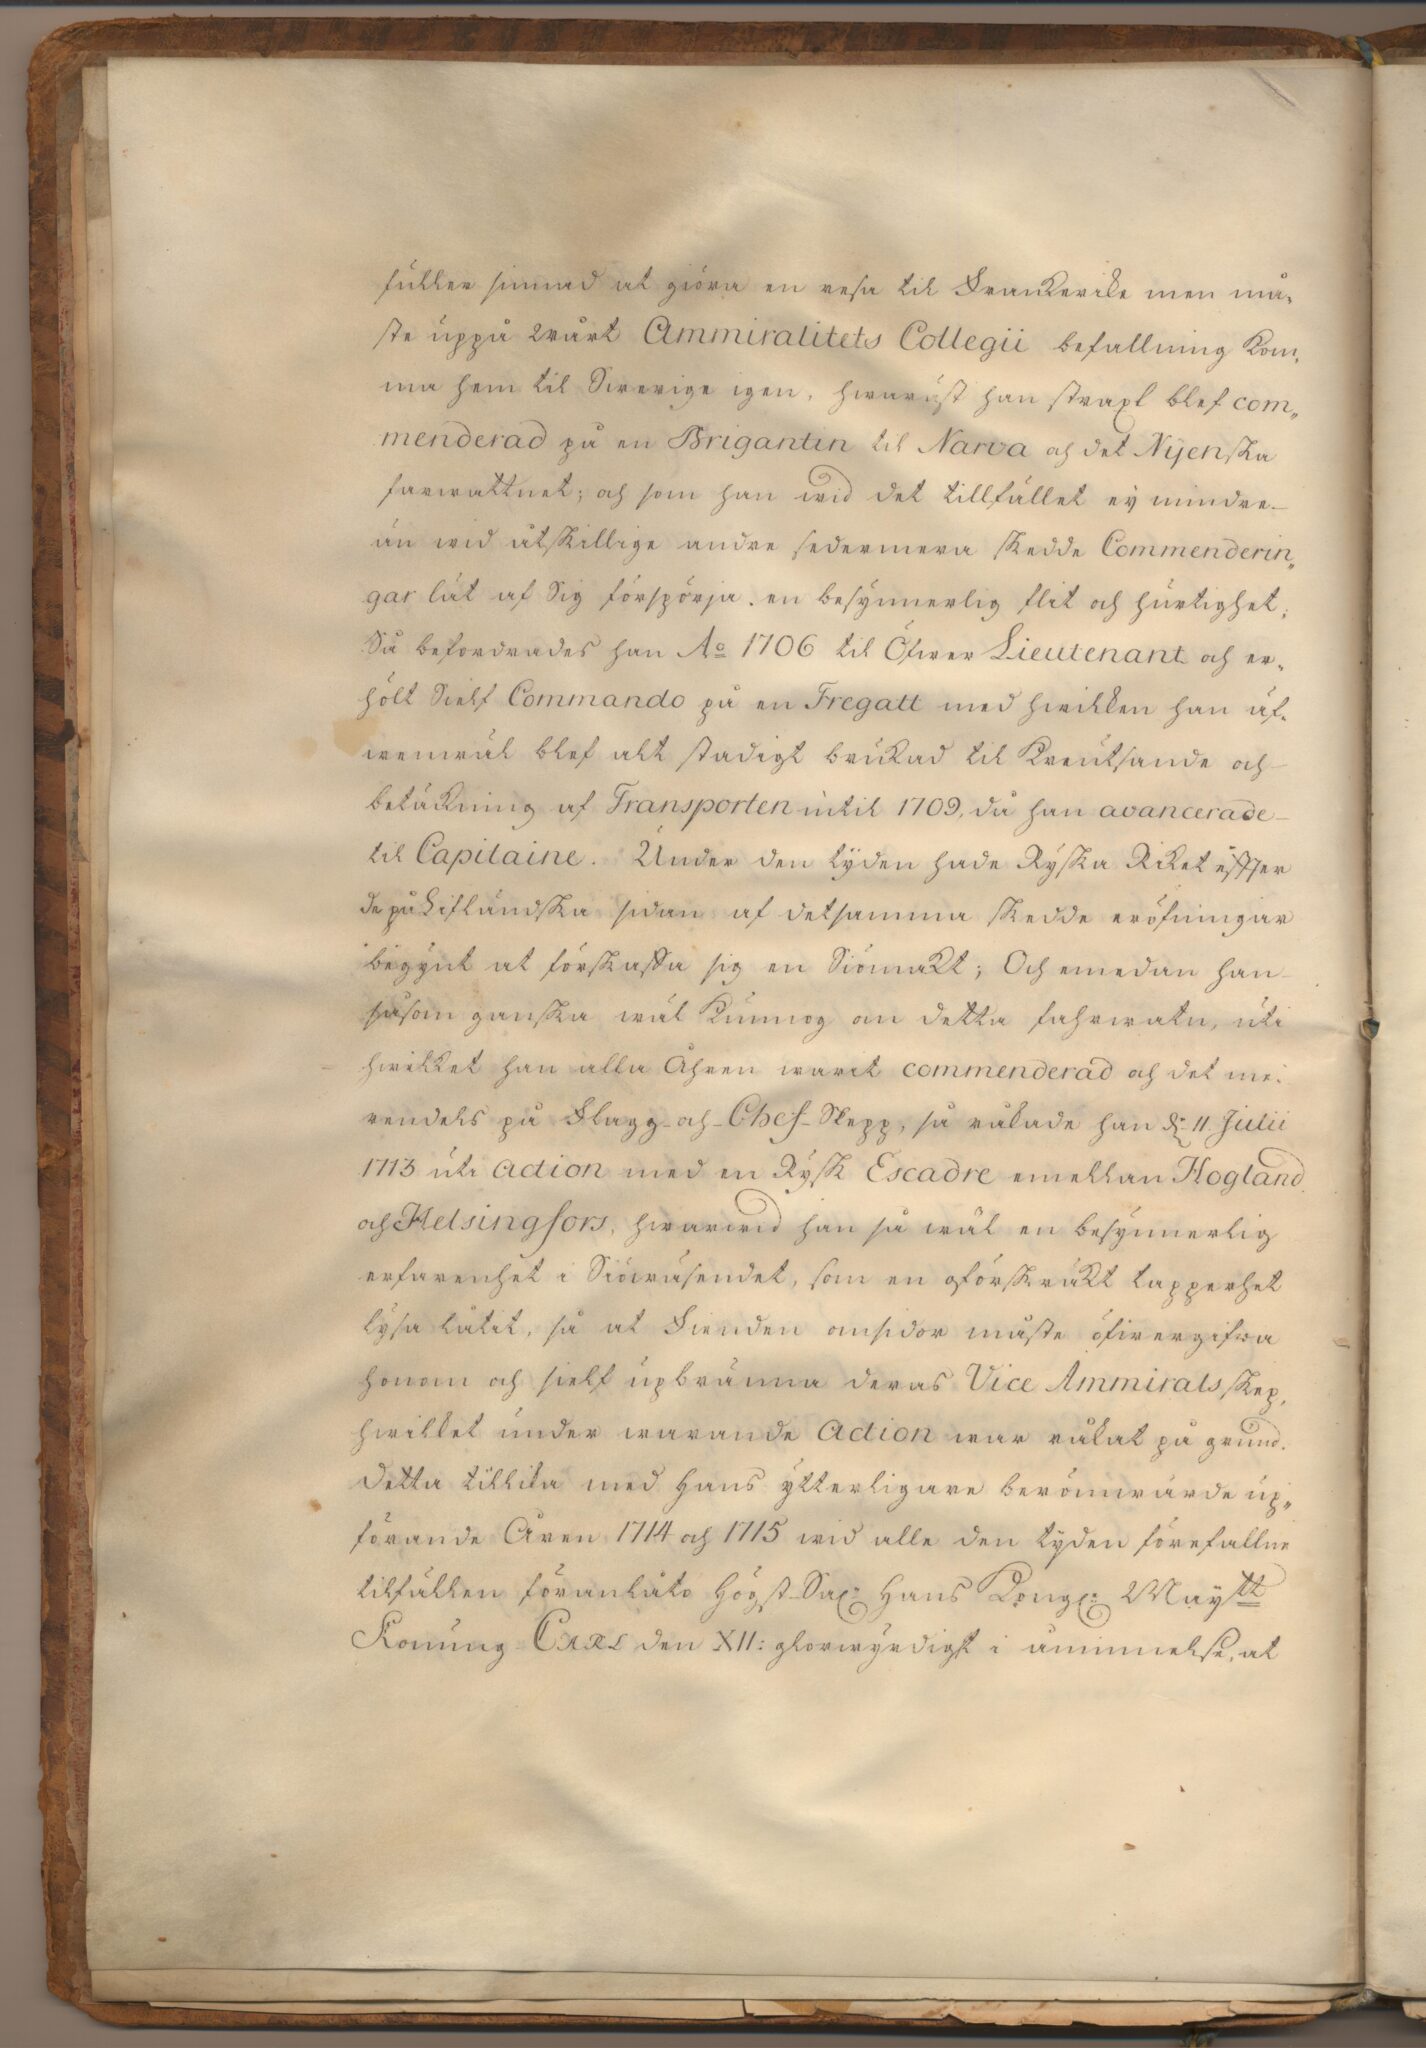 fuller sinnad at giöra en resa til Franckerike men må-
ste uppå wårt Ammiralitets Collegii befallning kom-
ma hem til Swerige igen, hwaräst han straxt blef com-
menderad på en Brigantin til Narva och det Nyenska
farwattnet; och som han wid det tillfället ey mindre
än wid åtskillige andre sedermera skedde Commenderin-
gar lät af Sig förspörja en besynnerlig flit och hurtighet;
Så befordrades han Ao 1706 til Öfwer Lieutenant och er-
hölt Sielf Commando på en Fregatt med hwilken han äf-
wenwäl blef alt stadigt brukad til Kreutsande och
betäckning af Transporten intil 1709, då han avancerade
til Capitaine. Under den tyden hade Ryska Riket effter
de på Lifländska sidan af detsamma skedde eröfningar
begynt at förskaffa sig en Siömakt; Och emedan han
såsom ganska wäl kunnog om detta fahrwatn, uti
hwilket han alla Åhren warit commenderad och det me-
rendels på Flagg- och Chef-Skepp, så råkade han d: 11 Julii
1713 uti Action med en Rysk Escadre emellan Hogland
och Helsingfors, hwarwid han så wäl en besynnerlig
erfarenhet i Siöwäsendet, som en oförskräkt tapperhet
lysa låtit, så at Fienden omsidor måste öfwergifwa
honom och sielf upbränna deras Vice Ammirals skep,
hwilket under warande Action war råkat på grund.
Detta tillika med Hans ytterligare berömwärde up-
förande Åren 1714 och 1715 wid alle den tyden förefallne
tilfällen föranläto Högst-Sal: Hans Kongl: Maytt
Konung CARL den XII: glorwyrdigst i åminnelse, at